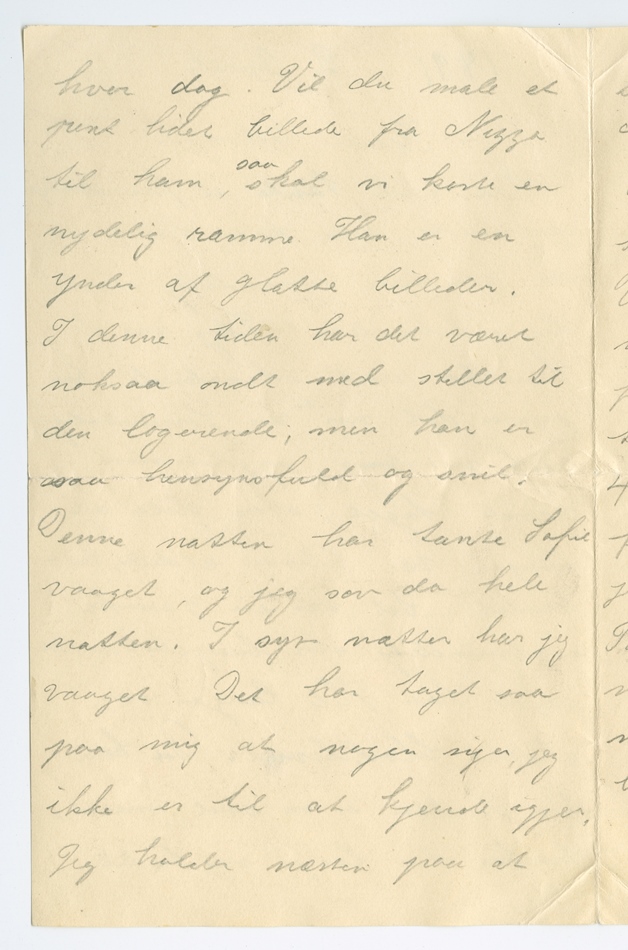 hver dag. Vil du male et
pent lidet billede fra Nizza
til ham, saa skal vi koste en
nydelig ramme. Han er en
ynder af glatte billeder.
I denne tiden har det været
noksaa ondt med stellet til
den logerende, men han er
saa hensynsfuld og snil.
Denne natten har tante Sofie
vaaget, og jeg sov da hele
natten. I syv nætter har jeg
vaaget Det har taget saa
paa mig at nogen siger jeg
ikke er til at kjende igjen.
Jeg holder næsten paa at